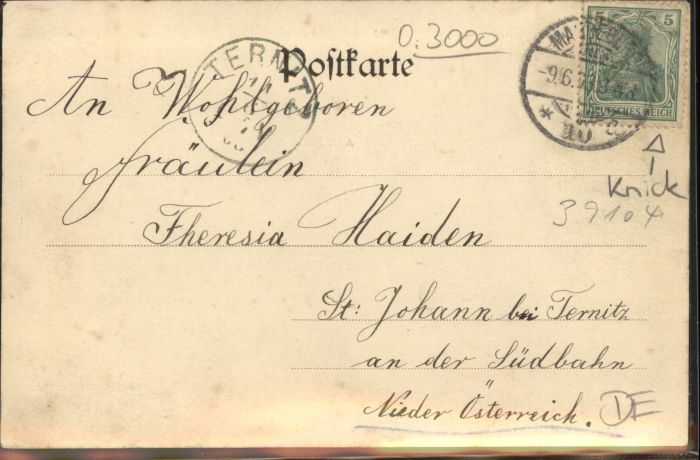 0.3000
5 5
TERNITZ
Postkarte
DEUTSCHES REICH
An Wohlgeboren
Fräulein
Knick
39104
Theresia Haiden
St: Johann bei Ternitz
an der Südbahn
Nieder Österreich.
DE